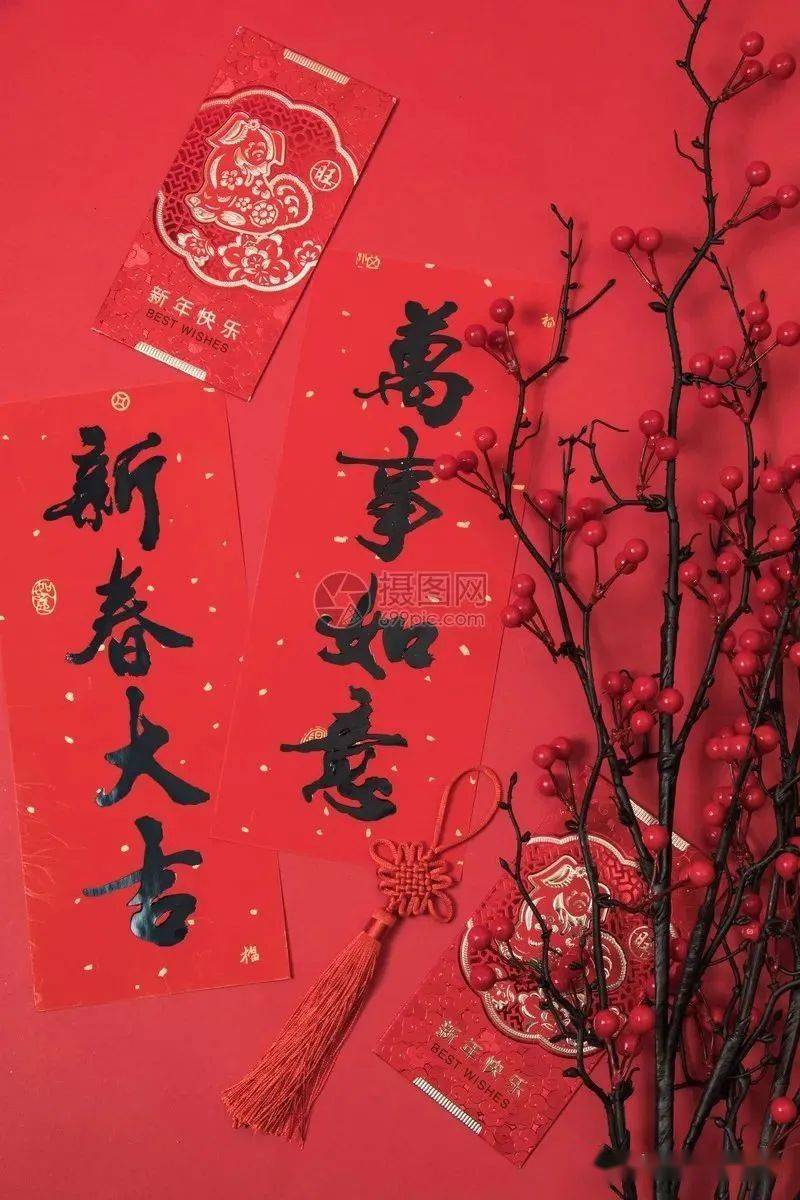 旺
新年快乐
BEST WISHES
萬事如意
新春大吉
如意
福
福
摄图网
699pic.com
旺
新年快乐
BEST WISHES